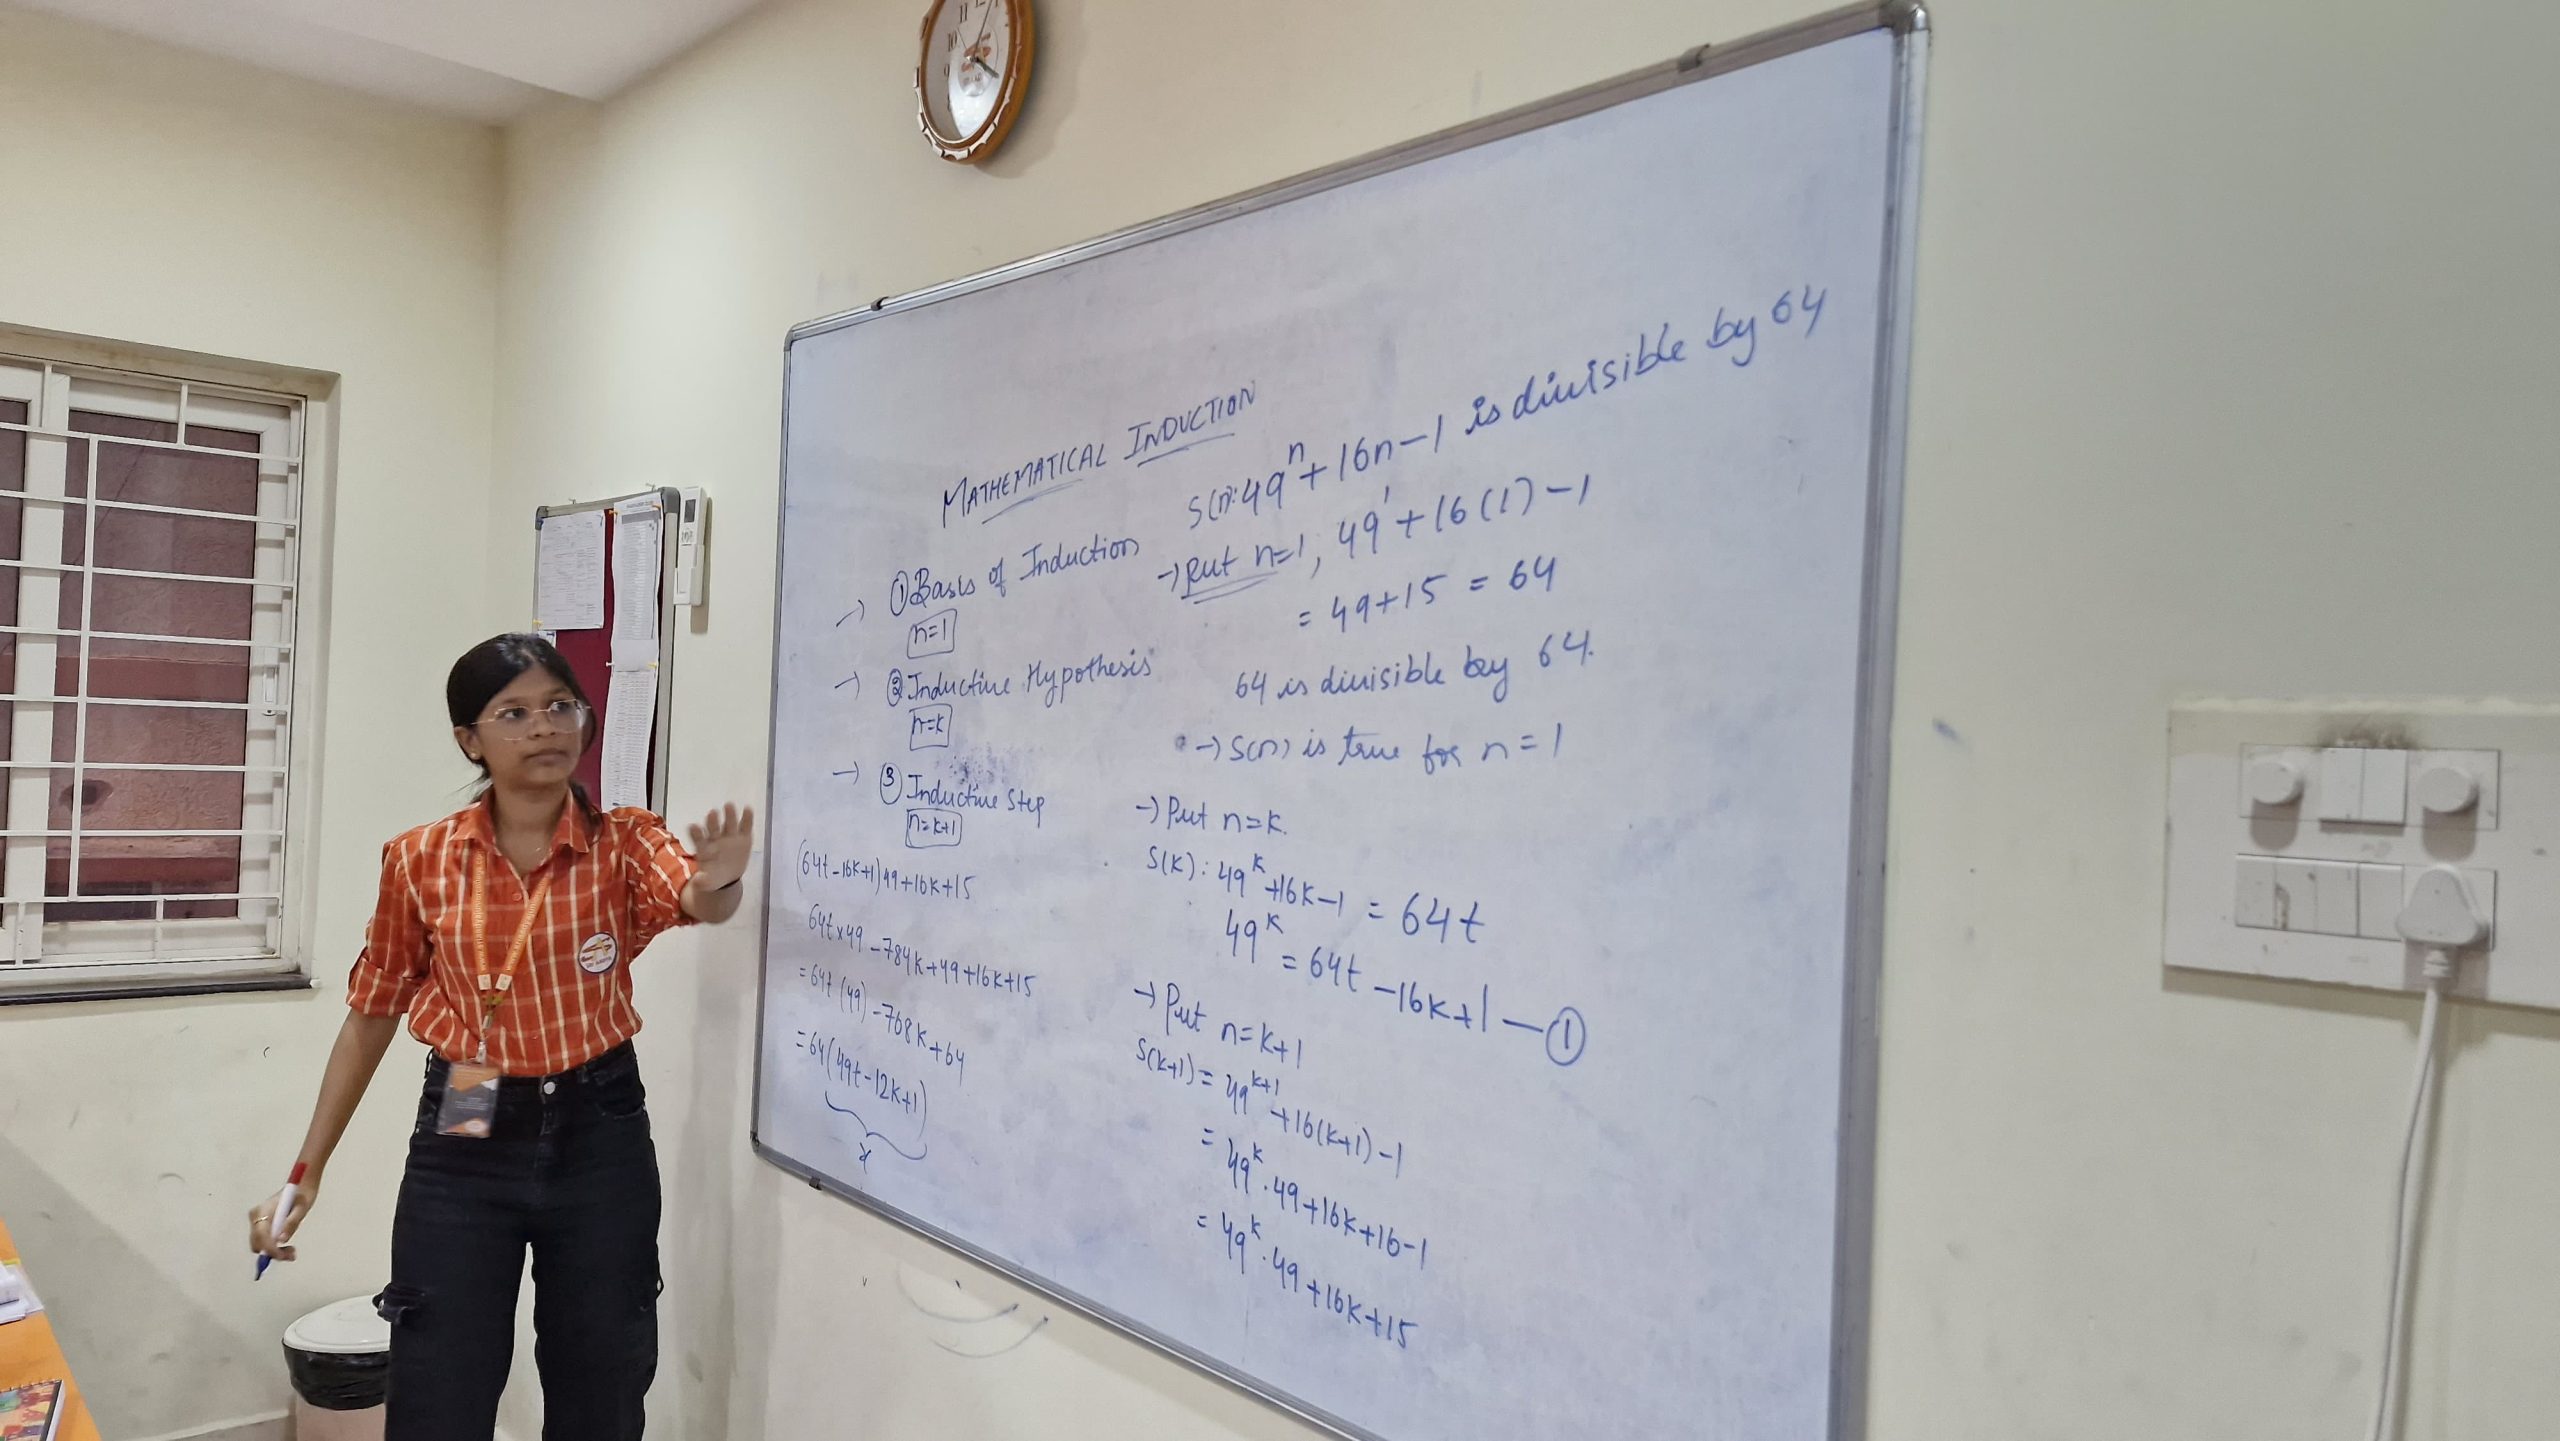 MATHEMATICAL INDUCTION
→ ① Basis of Induction
n=1
→ ② Inductive Hypothesis
n=k
→ ③ Inductive Step
n=k+1
(64t-16k+1)49+16k+15
64t×49-784k+49+16k+15
=64t(49)-768k+64
=64(49t-12k+1)
S(n):49ⁿ+16n-1 is divisible by 64
→ put n=1, 49¹+16(1)-1
= 49+15 = 64
64 is divisible by 64.
→ S(n) is true for n=1
→ Put n=k.
S(k): 49ᵏ+16k-1 = 64t
49ᵏ = 64t-16k+1 — ①
→ Put n=k+1
S(k+1) = 49ᵏ⁺¹+16(k+1)-1
= 49ᵏ.49+16k+16-1
= 49ᵏ.49+16k+15
11 12
10
9